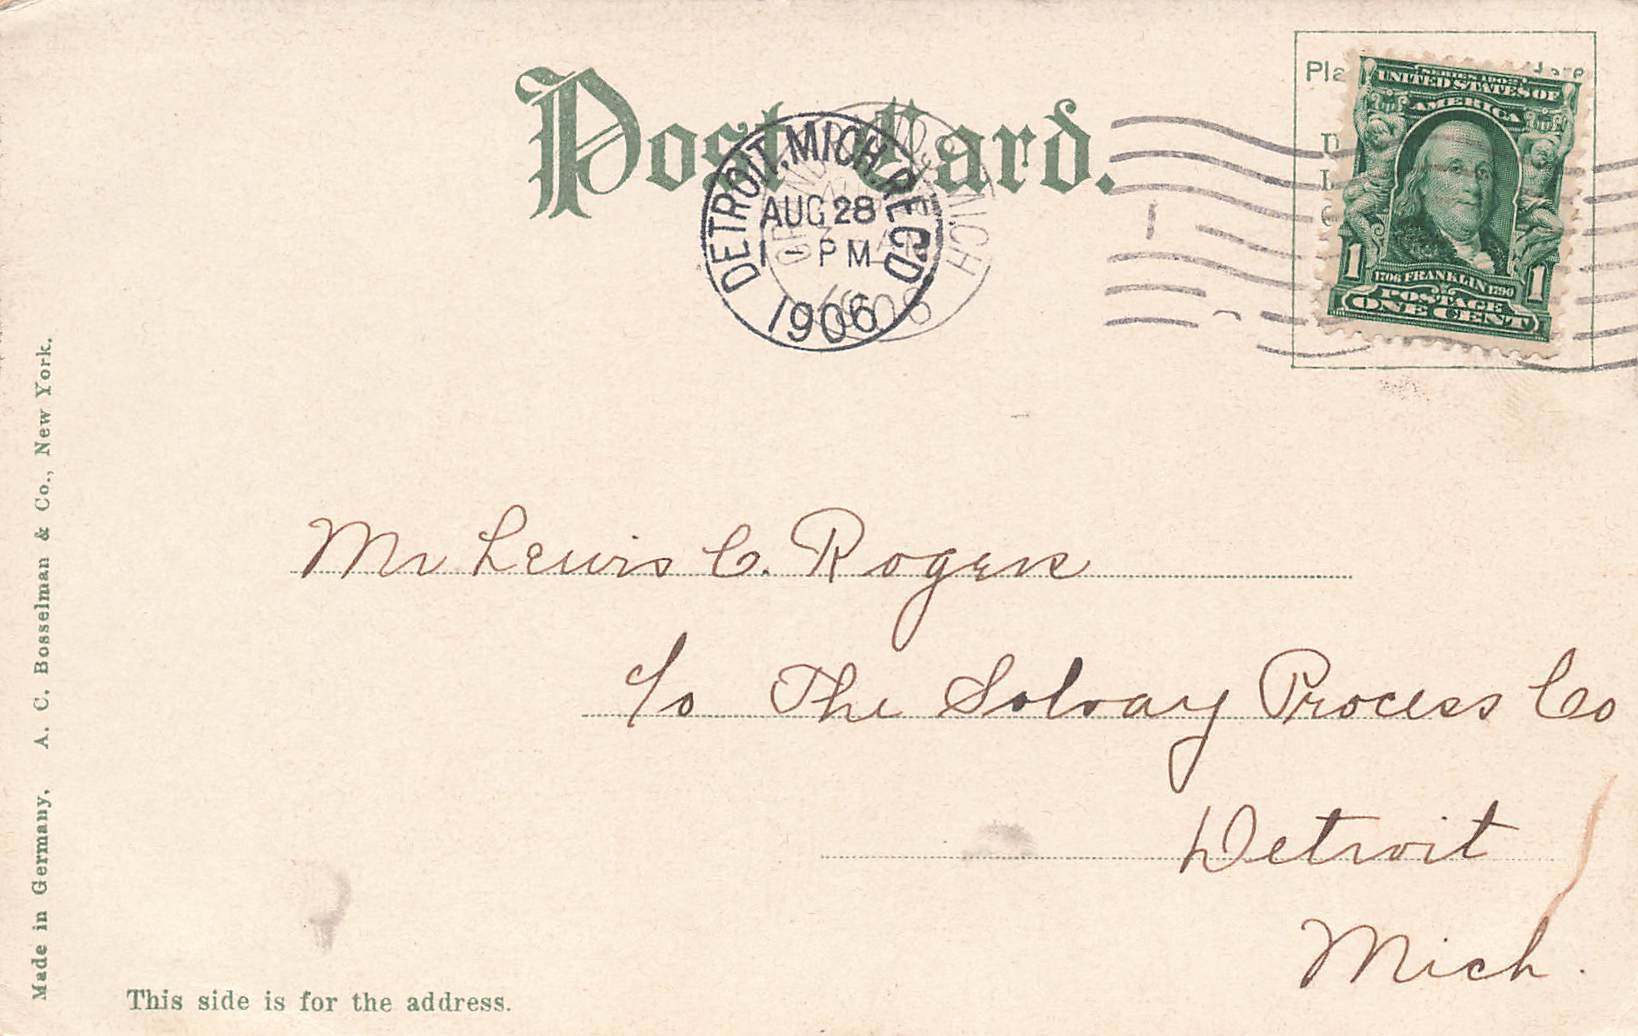 Post Card.
DETROIT, MICH. REC'D
AUG 28
1 - PM
1906
MICH
1906
Pla
Here
SERIES 1902
UNITED STATES OF
AMERICA
1 1
1706 FRANKLIN 1790
POSTAGE
ONE CENT
Mr Lewis C. Rogers
c/o The Solvay Process Co
Detroit
Mich.
This side is for the address.
Made in Germany. A. C. Bosselman & Co., New York.